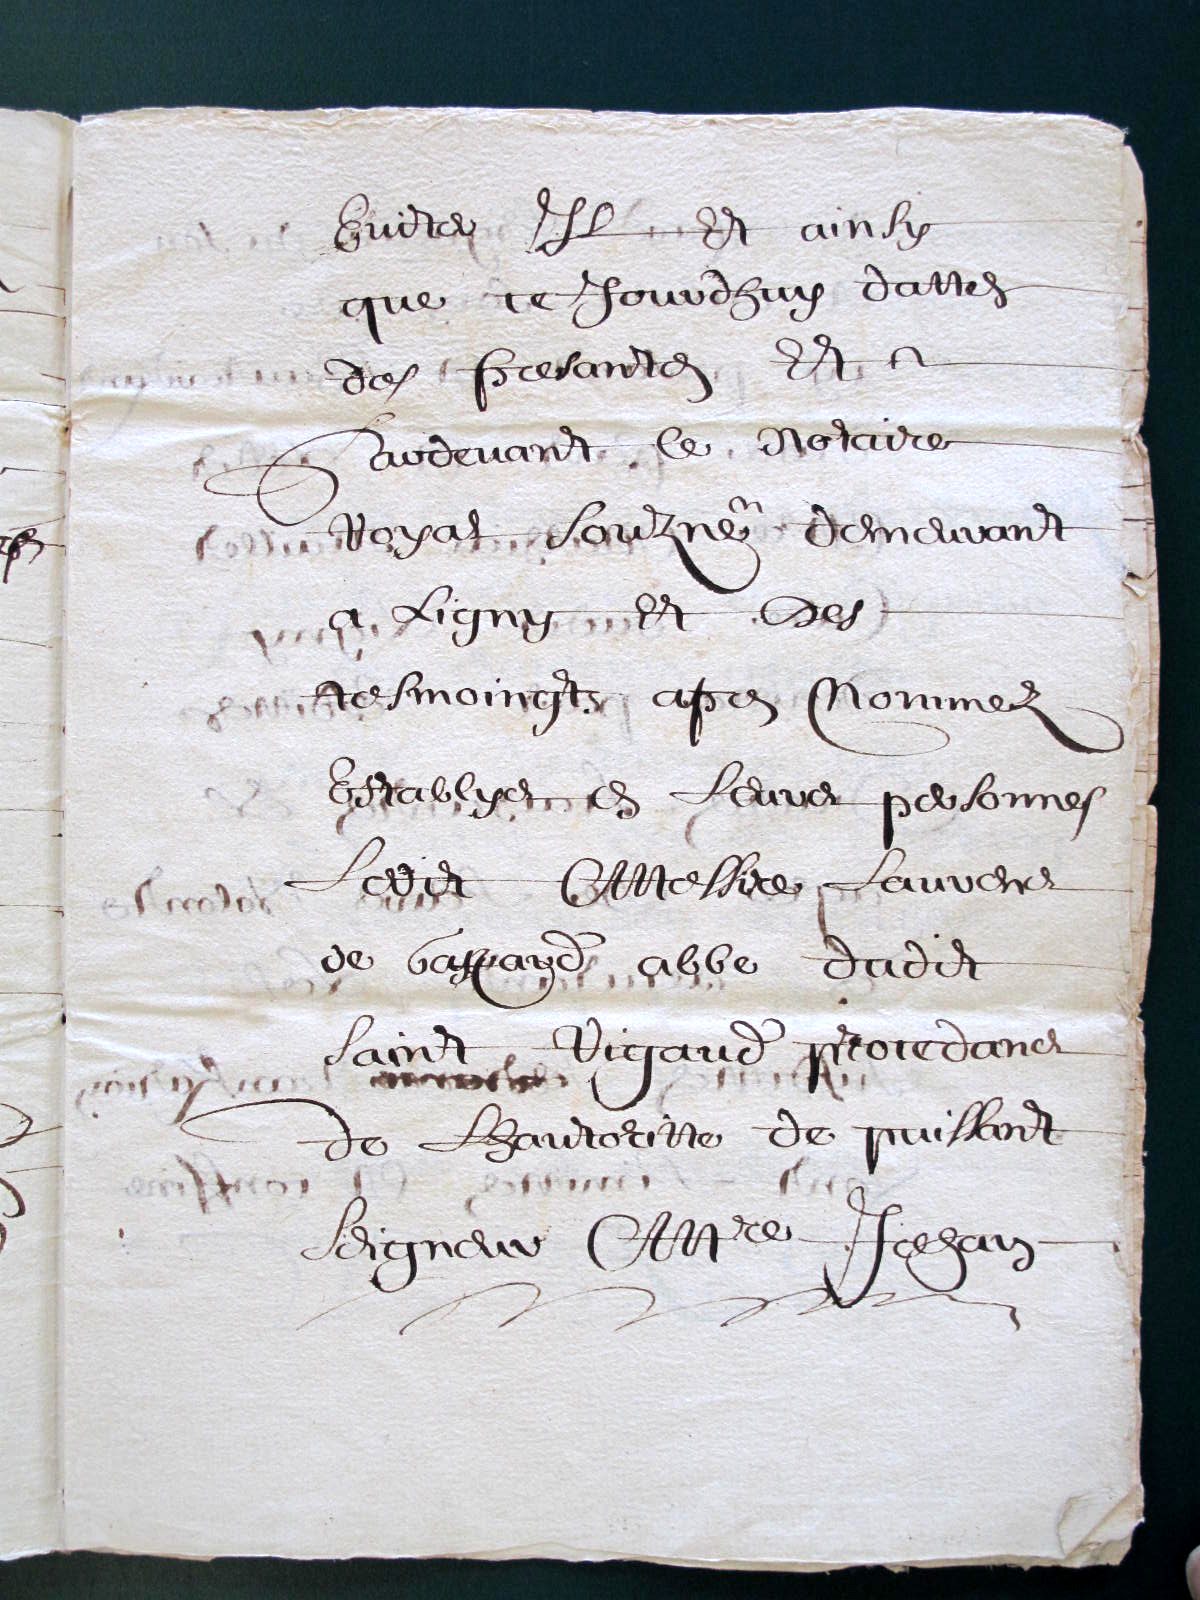 Euiter Il est ainsy
que ce Jourdhuy datte
des presantes Et
Pardeuant le Notaire
Royal soubzne demeurant
a Ligny Et Des
tesmoingtz apres Nommez
Establyes en Leurs personnes
Ledit Messire Laurens
de abbe dudit
Saint Rigaud procedans
de Lhautoritte de puissant
Seigneur Mre Jcehan